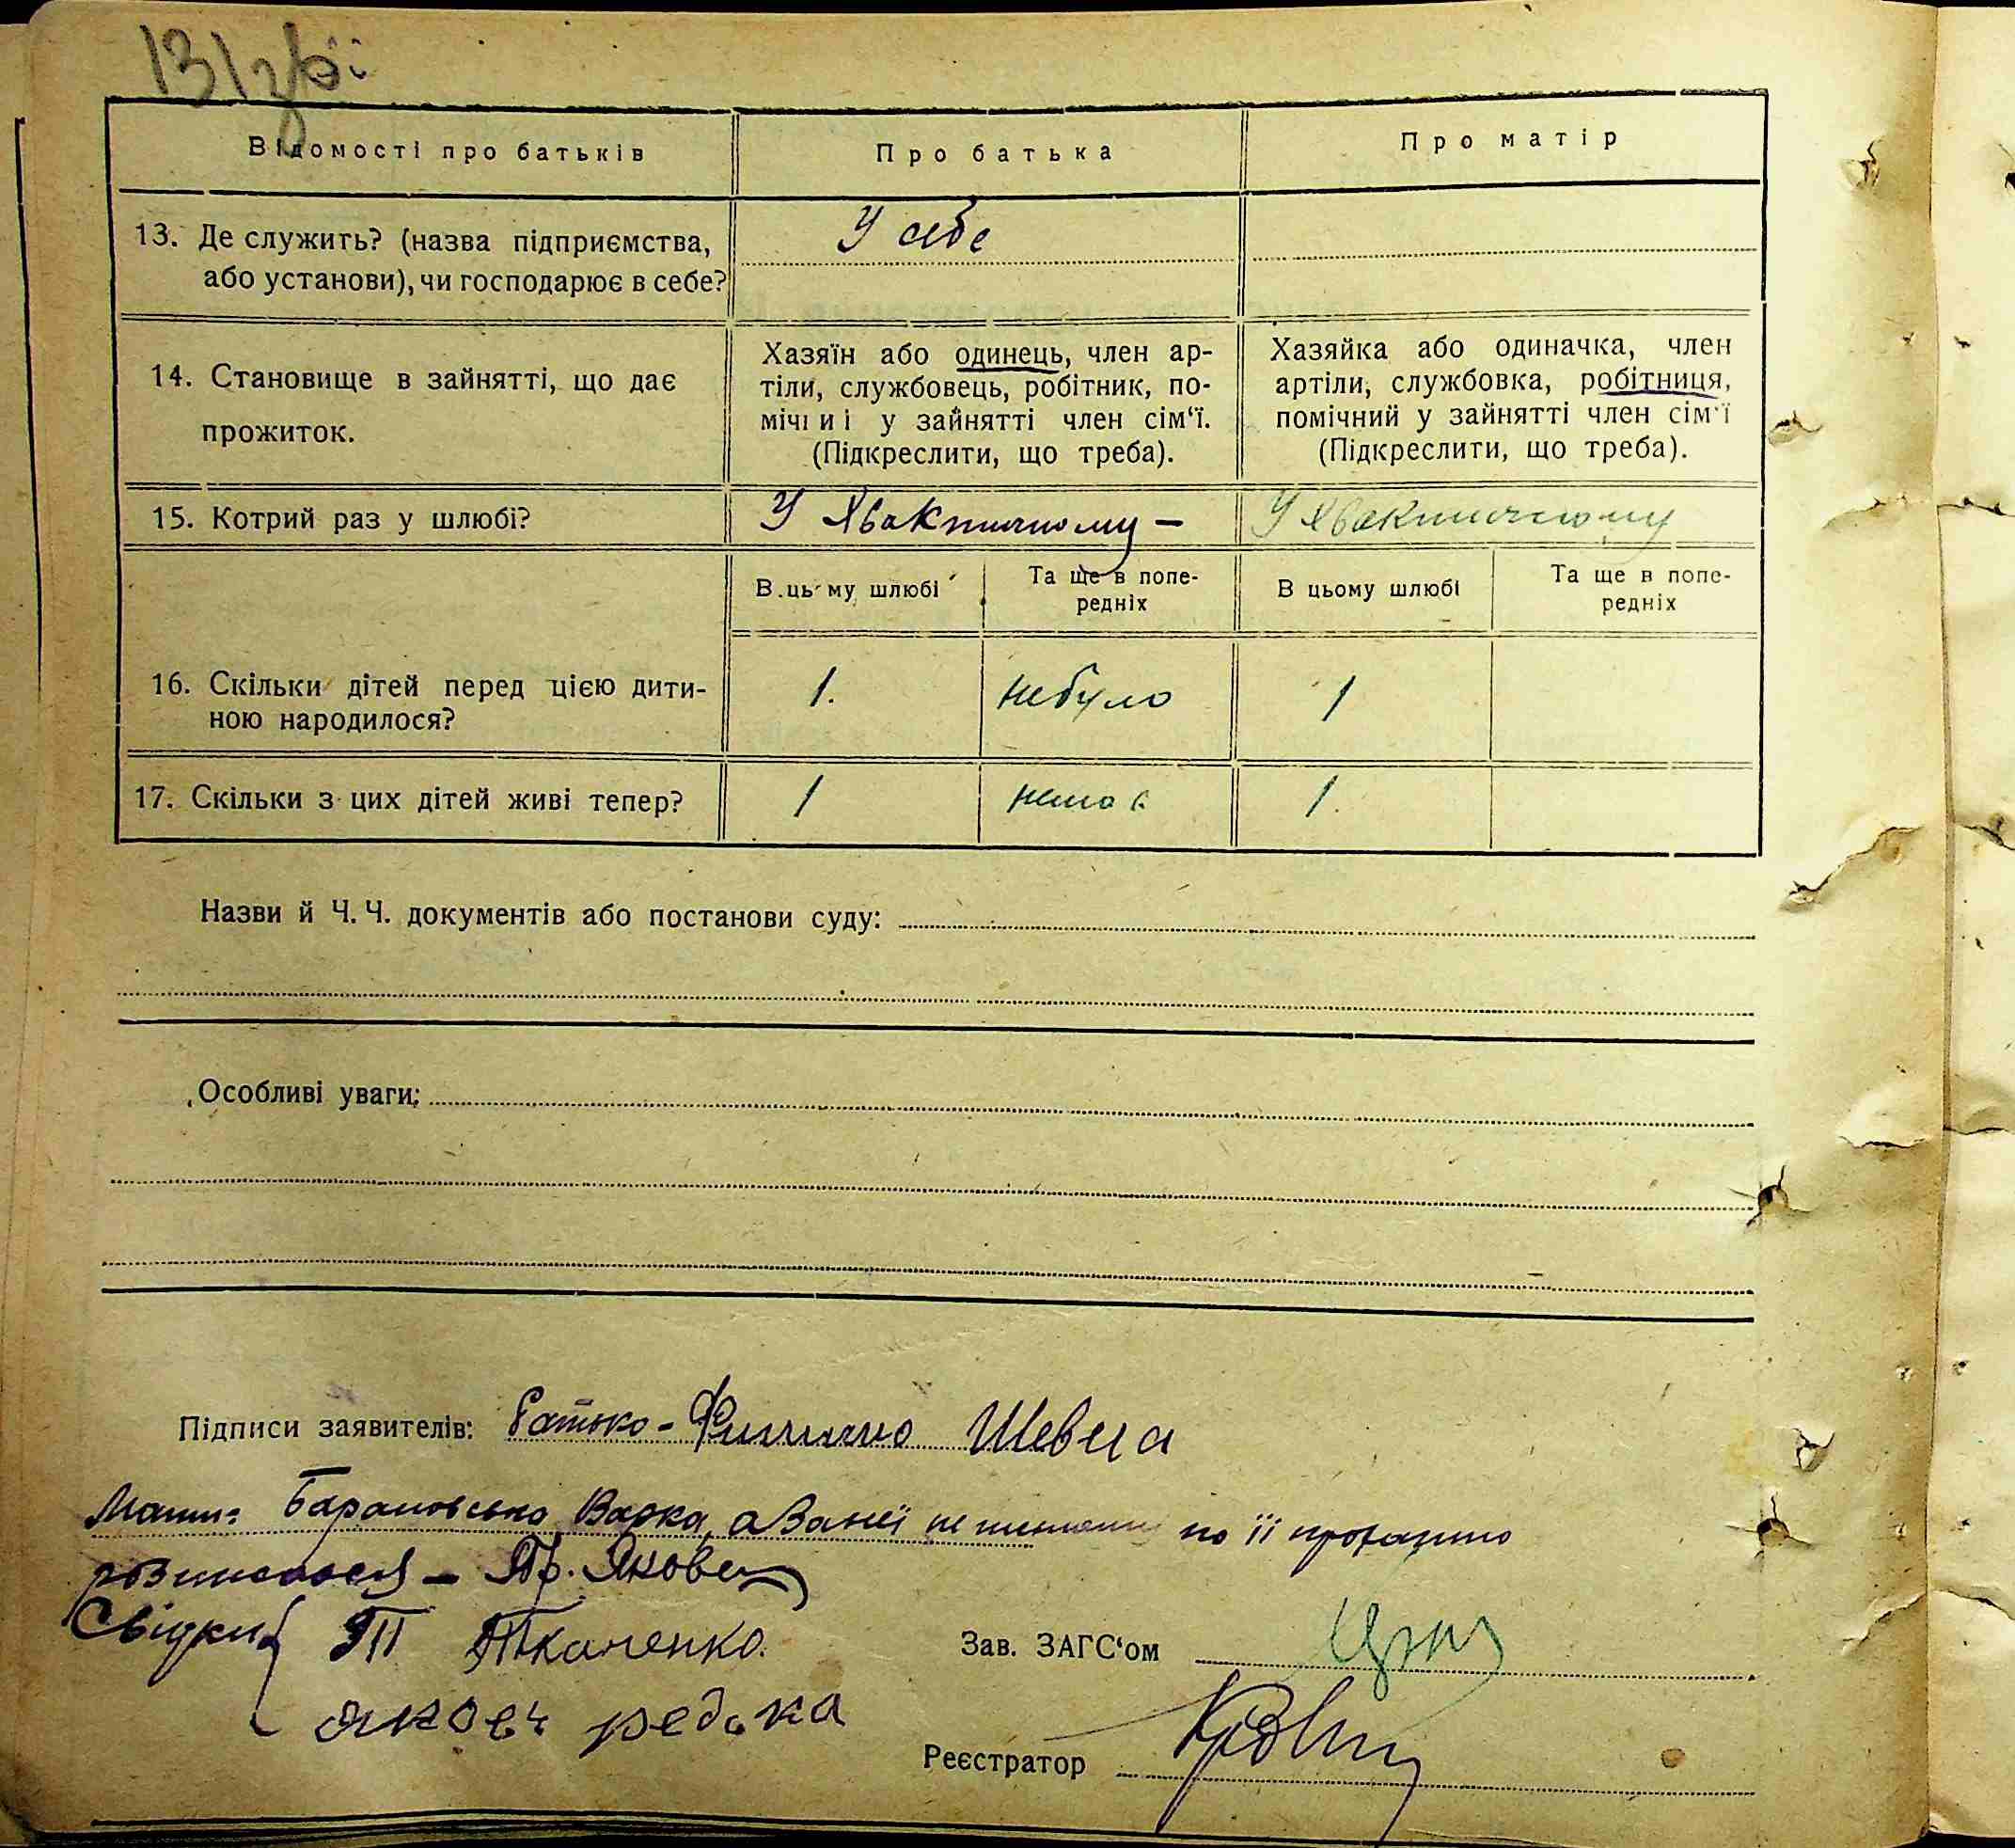 131 зві
Відомості про батьків
Про батька
Про матір
13. Де служить? (назва підприємства,
або установи), чи господарює в себе?
У себе
14. Становище в зайнятті, що дає
прожиток.
Хазяїн або одинець, член ар-
тіли, службовець, робітник, по-
мічний у зайнятті член сім‘ї.
(Підкреслити, що треба).
Хазяйка або одиначка, член
артіли, службовка, робітниця,
помічний у зайнятті член сім‘ї
(Підкреслити, що треба).
15. Котрий раз у шлюбі?
У Хвактичному –
У Хвактичному
В цьому шлюбі
Та ще в попе-
редніх
В цьому шлюбі
Та ще в попе-
редніх
16. Скільки дітей перед цією дити-
ною народилося?
1.
небуло
1
17. Скільки з цих дітей живі тепер?
1
немає
1.
Назви й Ч. Ч. документів або постанови суду:
Особливі уваги:
Підписи заявителів: Батько - Филимо Шевца
Мати: Барановська Варка, а Занеї не письмену по її проханню
розписався – Яковец
Свідки ТП Ткаченко.
яковч редька
Зав. ЗАГС‘ом
Реєстратор